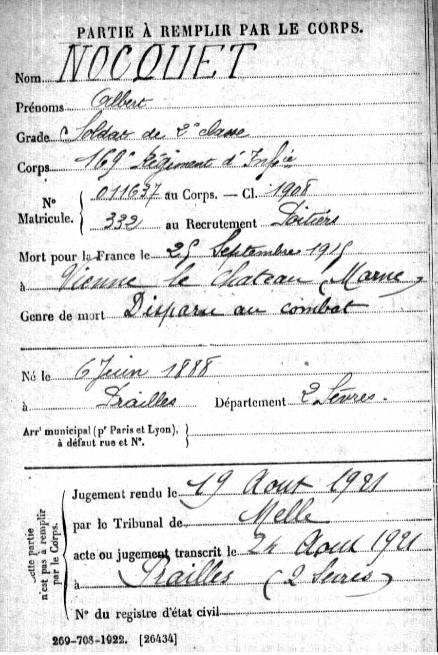 PARTIE À REMPLIR PAR LE CORPS.
Nom NOCQUET
Prénoms Albert
Grade Soldat de 2e classe
Corps 169e Régiment d'Infie
N° Matricule. 011637 au Corps. — Cl. 1908
332 au Recrutement Poitiers
Mort pour la France le 25 Septembre 1915
à Vienne le Chateau (Marne)
Genre de mort Disparu au combat
Né le 6 Juin 1888
à Prailles Département 2 Sèvres.
Arrt municipal (pr Paris et Lyon),
à défaut rue et N°.
Cette partie
n'est pas à remplir
par le Corps.
Jugement rendu le 19 Aout 1921
par le Tribunal de Melle
acte ou jugement transcrit le 24 Aout 1921
à Prailles (2 Sevres)
N° du registre d'état civil
269-708-1922. [26434]